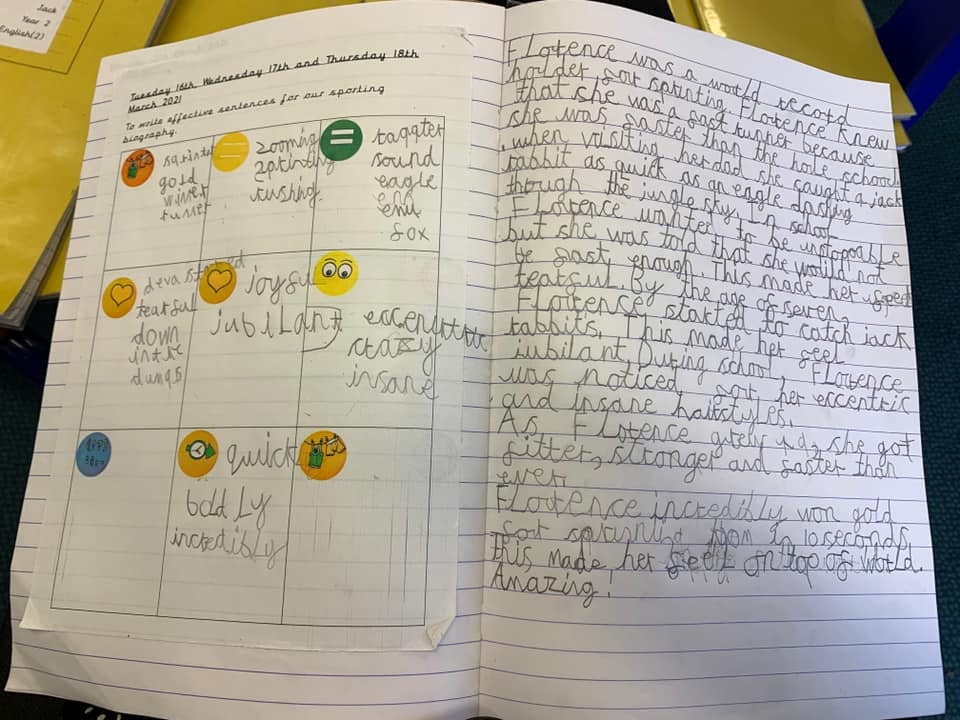 Jack
Year 2
English(2)
Tuesday 16th, Wednesday 17th and Thursday 18th
March 2021
To write effective sentences for our sporting
biography.
sprinter
gold
winer
runner
zooming
zprinting
rushing
sound
eagle
emu
fox
devastated
tearful
down
in the
dumps
joyful
jubilant
eccentric
crazy
insane
quick
boldly
incredibly
Florence was a world record
holder for sprinting. Florence knew
that she was a fast runner because
she was faster than the hole school.
when visiting her dad she caught a jack
rabbit as quick as an eagle dashing
though the jungle sky. In school
Florence wanted to be unstopable
but she was told that she would not
be fast enough. This made her
tearful. By the age of seven,
Florence started to catch jack
rabbits. This made her feel
jubilant. During school, Florence
was noticed for her eccentric
and insane hairstyles.
As Florence she got
fitter, stronger and faster than
ever.
Florence incredibly won gold
for 10 seconds.
This made her feel on top of world.
Amazing!